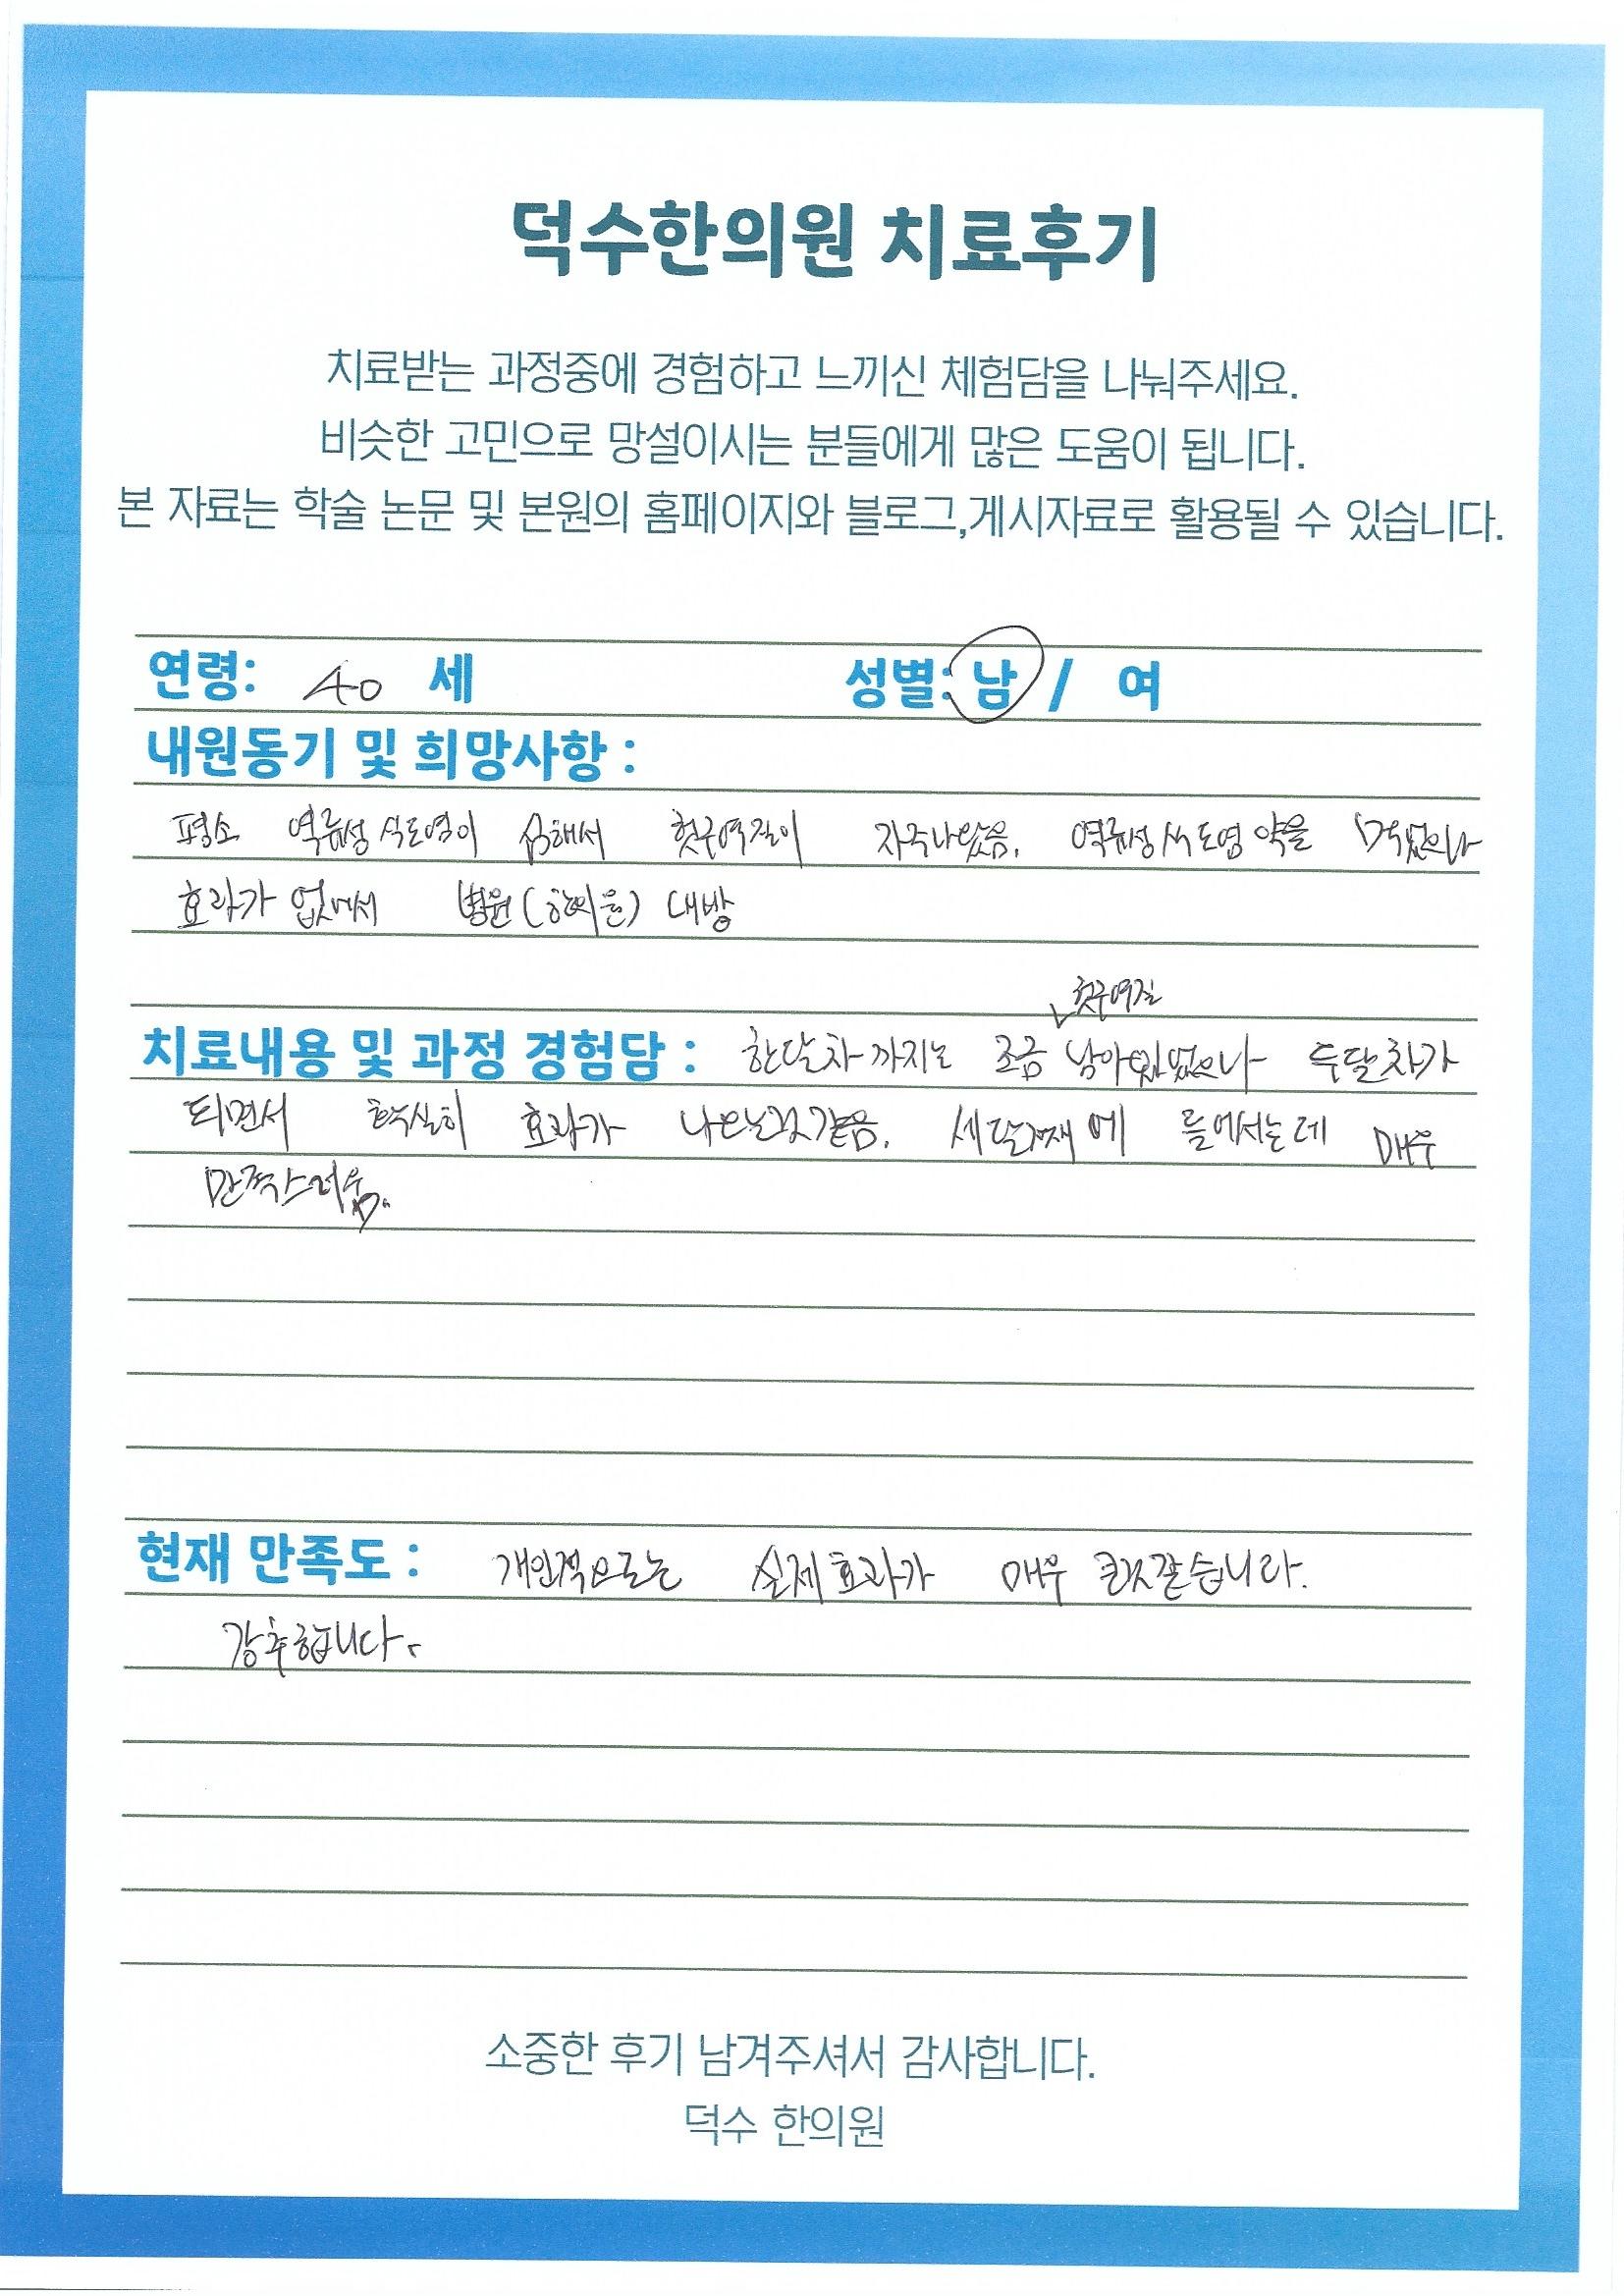 덕수한의원 치료후기
치료받는 과정중에 경험하고 느끼신 체험담을 나눠주세요.
비슷한 고민으로 망설이시는 분들에게 많은 도움이 됩니다.
본 자료는 학술 논문 및 본원의 홈페이지와 블로그,게시자료로 활용될 수 있습니다.
연령: 40 세 성별: 남 / 여
내원동기 및 희망사항 :
평소 역류성 식도염이 심해서 헛구역질이 자주나왔음. 역류성 식도염 약을 먹었으나
효과가 없어서 병원(한의원) 내방
헛구역질
치료내용 및 과정 경험담 : 한달차 까지는 조금 남아있었으나 두달차가
되면서 확실히 효과가 나오는것같음. 세달째에 들어서는데 매우
만족스러움.
현재 만족도 : 개인적으로는 실제효과가 매우 큰것같습니다.
강추합니다.
소중한 후기 남겨주셔서 감사합니다.
덕수 한의원